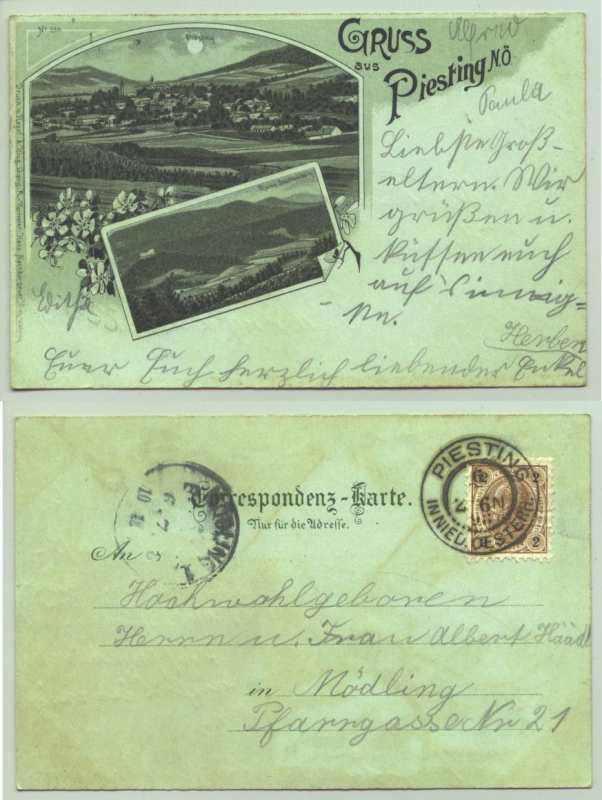 GRUSS
aus
Piesting N.Ö
Alfred
Paula
Liebste Groß-
eltern. Wir
grüßen u.
küssen euch
auf
Editha
Euer Euch herzlich liebender Enkel
Correspondenz-Karte.
Nur für die Adresse.
An
Hochwohlgeboren
Herrn u. Frau Albert
in Mödling
Pfarrgasse Nr 21
PIESTING
IN NIED. OESTERR.
2
2